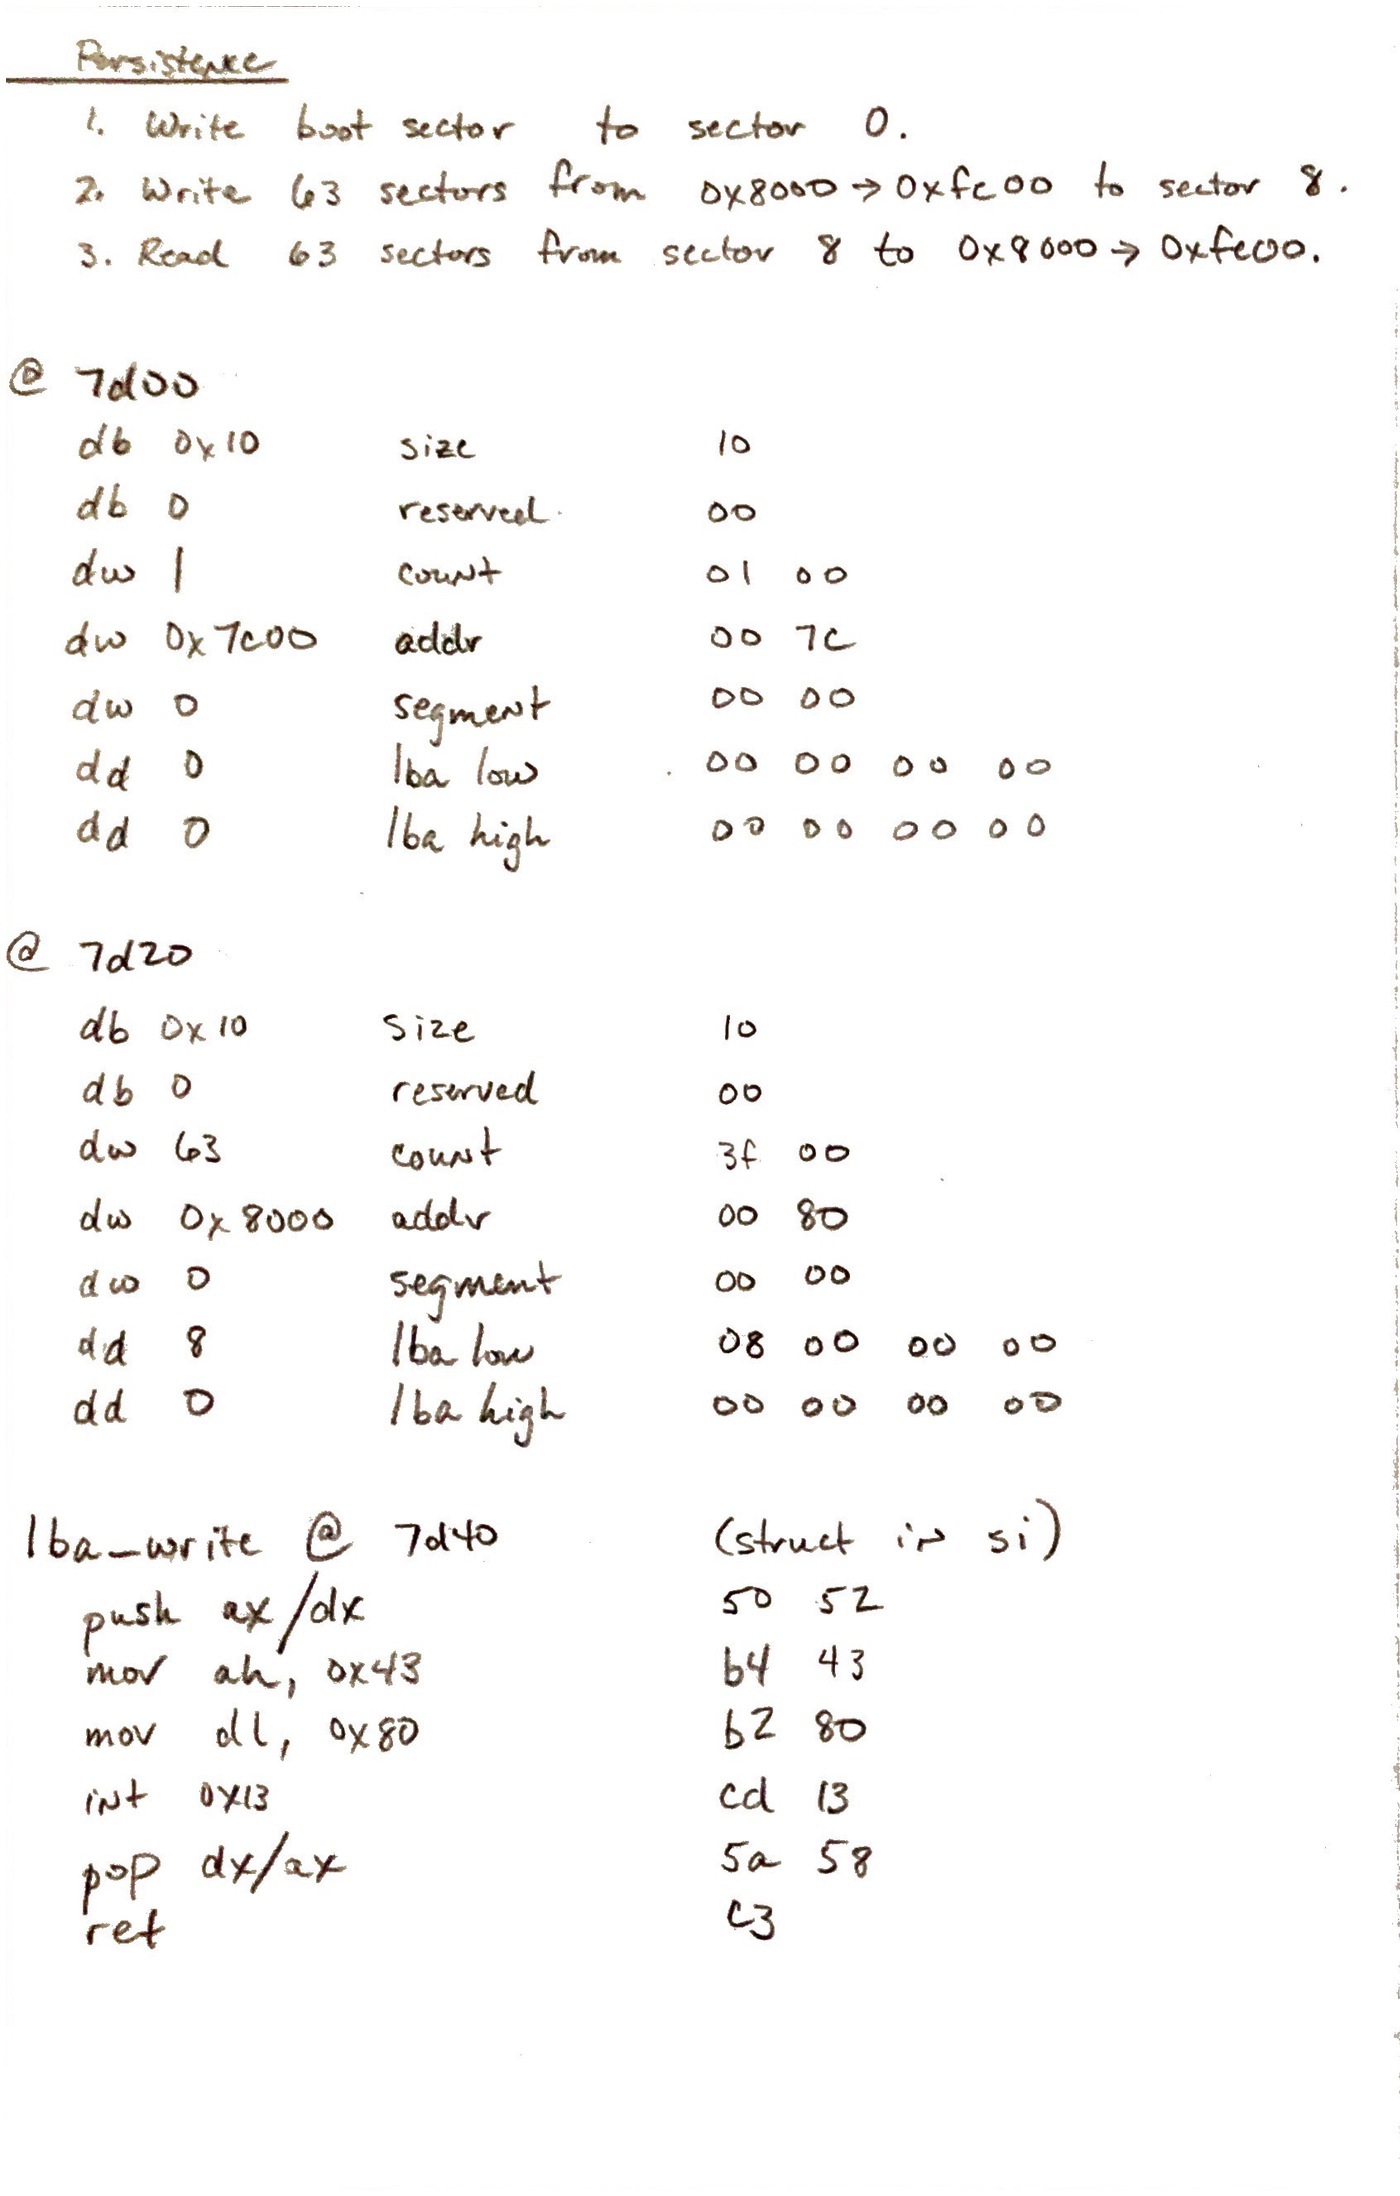 Persistence
1. Write boot sector to sector 0.
2. Write 63 sectors from 0x8000 → 0xfe00 to sector 8.
3. Read 63 sectors from sector 8 to 0x8000 → 0xfe00.
@ 7d00
db 0x10 size 10
db 0 reserved 00
dw 1 count 01 00
dw 0x7c00 addr 00 7c
dw 0 segment 00 00
dd 0 lba low 00 00 00 00
dd 0 lba high 00 00 00 00
@ 7d20
db 0x10 size 10
db 0 reserved 00
dw 63 count 3f 00
dw 0x8000 addr 00 80
dw 0 segment 00 00
dd 8 lba low 08 00 00 00
dd 0 lba high 00 00 00 00
lba_write @ 7d40 (struct in si)
push ax/dx 50 52
mov ah, 0x43 b4 43
mov dl, 0x80 b2 80
int 0x13 cd 13
pop dx/ax 5a 58
ret c3